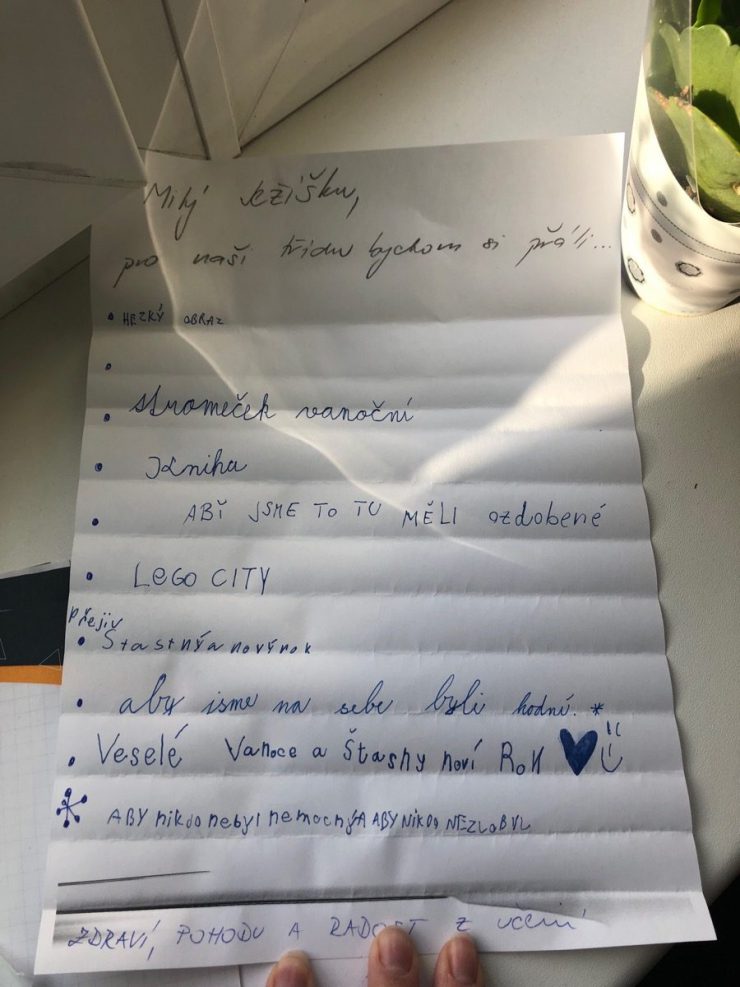 Milý Ježíšku,
pro naši třídu bychom si přáli...
• HEZKÝ OBRAZ
•
• stromeček vanoční
• Kniha
• ABI JSME TO TU MĚLI ozdobené
• LEGO CITY
přejiv
• Štastnýa novýrok
• aby jsme na sebe byli hodní. *
• Veselé Vanoce a Štasny noví Rok ♥
* ABY nikdo nebyl nemocnýA ABY NIKDO NEZLOBYL
ZDRAVÍ, POHODU A RADOST z učení